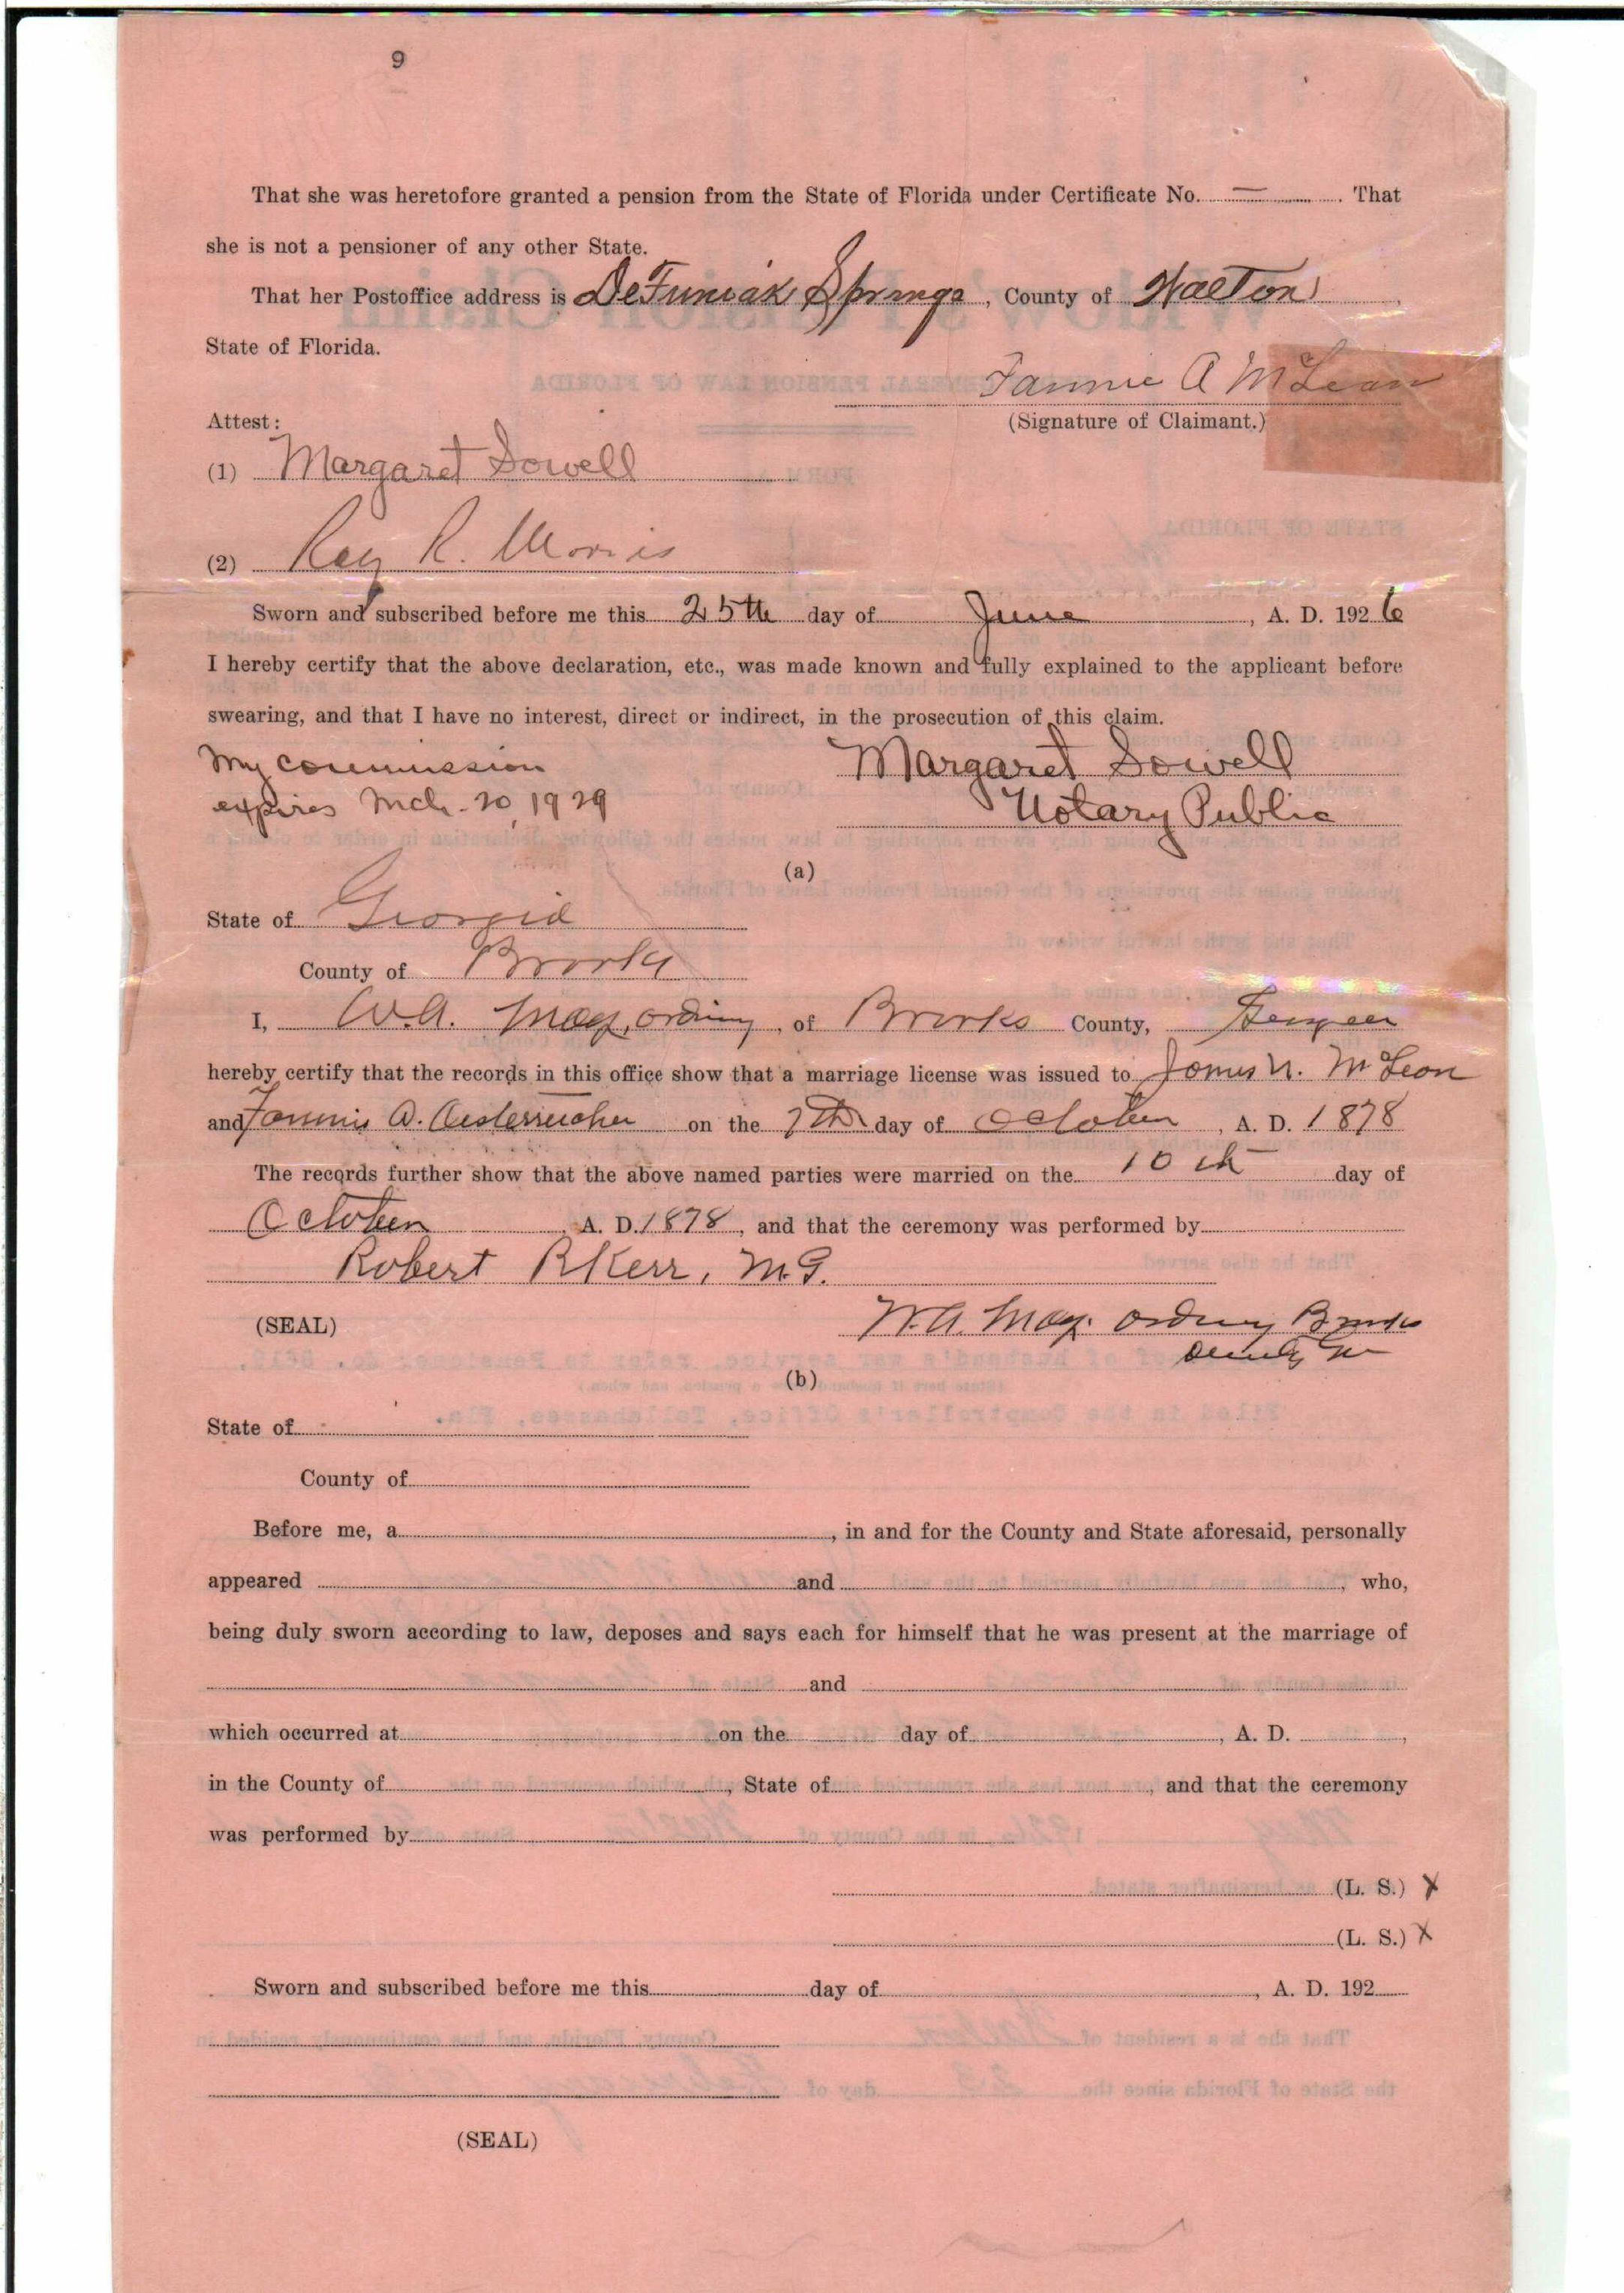 9
That she was heretofore granted a pension from the State of Florida under Certificate No. — . That
she is not a pensioner of any other State.
That her Postoffice address is DeFuniak Springs, County of Walton,
State of Florida.
Fannie A McLean
Attest:
(Signature of Claimant.)
(1) Margaret Sowell
(2) Ray R. Morris
Sworn and subscribed before me this 25th day of June, A. D. 1926
I hereby certify that the above declaration, etc., was made known and fully explained to the applicant before
swearing, and that I have no interest, direct or indirect, in the prosecution of this claim.
My commission Margaret Sowell
expires Mch. 20, 1929 Notary Public
(a)
State of Georgia
County of Brooks
I, W.A. May, ordinary, of Brooks County, Georgia
hereby certify that the records in this office show that a marriage license was issued to James N. McLeon
and Fannie A. on the 7th day of October, A. D. 1878
The records further show that the above named parties were married on the 10th day of
October, A. D. 1878, and that the ceremony was performed by
Robert P Kerr, M.G.
(SEAL) W.A. May. ordinary Brooks
(b)
State of
County of
Before me, a , in and for the County and State aforesaid, personally
appeared and , who,
being duly sworn according to law, deposes and says each for himself that he was present at the marriage of
and
which occurred at on the day of , A. D. ,
in the County of , State of , and that the ceremony
was performed by
(L. S.) X
(L. S.) X
Sworn and subscribed before me this day of , A. D. 192
(SEAL)